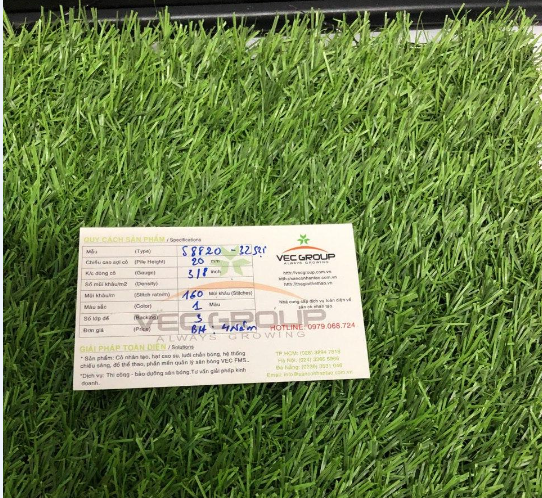 QUY CÁCH SẢN PHẨM / Specifications
Mẫu (Type) S8820 - 32 sợi
Chiều cao sợi cỏ (Pile Height) 20 mm
K/c dòng cỏ (Gauge) 3/8 inch
Số mũi khâu/m2 (Density)
Mũi khâu/m (Stitch rate/m) 160 Mũi khâu (Stitches)
Màu sắc (Color) 1 Màu
Số lớp đế (Backing) 3
Đơn giá (Price) BH: 4 Năm
VEC GROUP
ALWAYS GROWING
GIẢI PHÁP TOÀN DIỆN / Solutions
* Sản phẩm: Cỏ nhân tạo, hạt cao su, lưới chắn bóng, hệ thống
chiếu sáng, đồ thể thao, phần mềm quản lý sân bóng VEC FMS...
*Dịch vụ: Thi công - bảo dưỡng sân bóng.Tư vấn giải pháp kinh
doanh.
VEC GROUP
ALWAYS GROWING
http://vecgroup.com.vn
Nhà cung cấp dịch vụ toàn diện về
sân cỏ nhân tạo.
HOTLINE: 0979.068.724
TP.HCM:
Hà Nội:
Đà Nẵng:
Email: